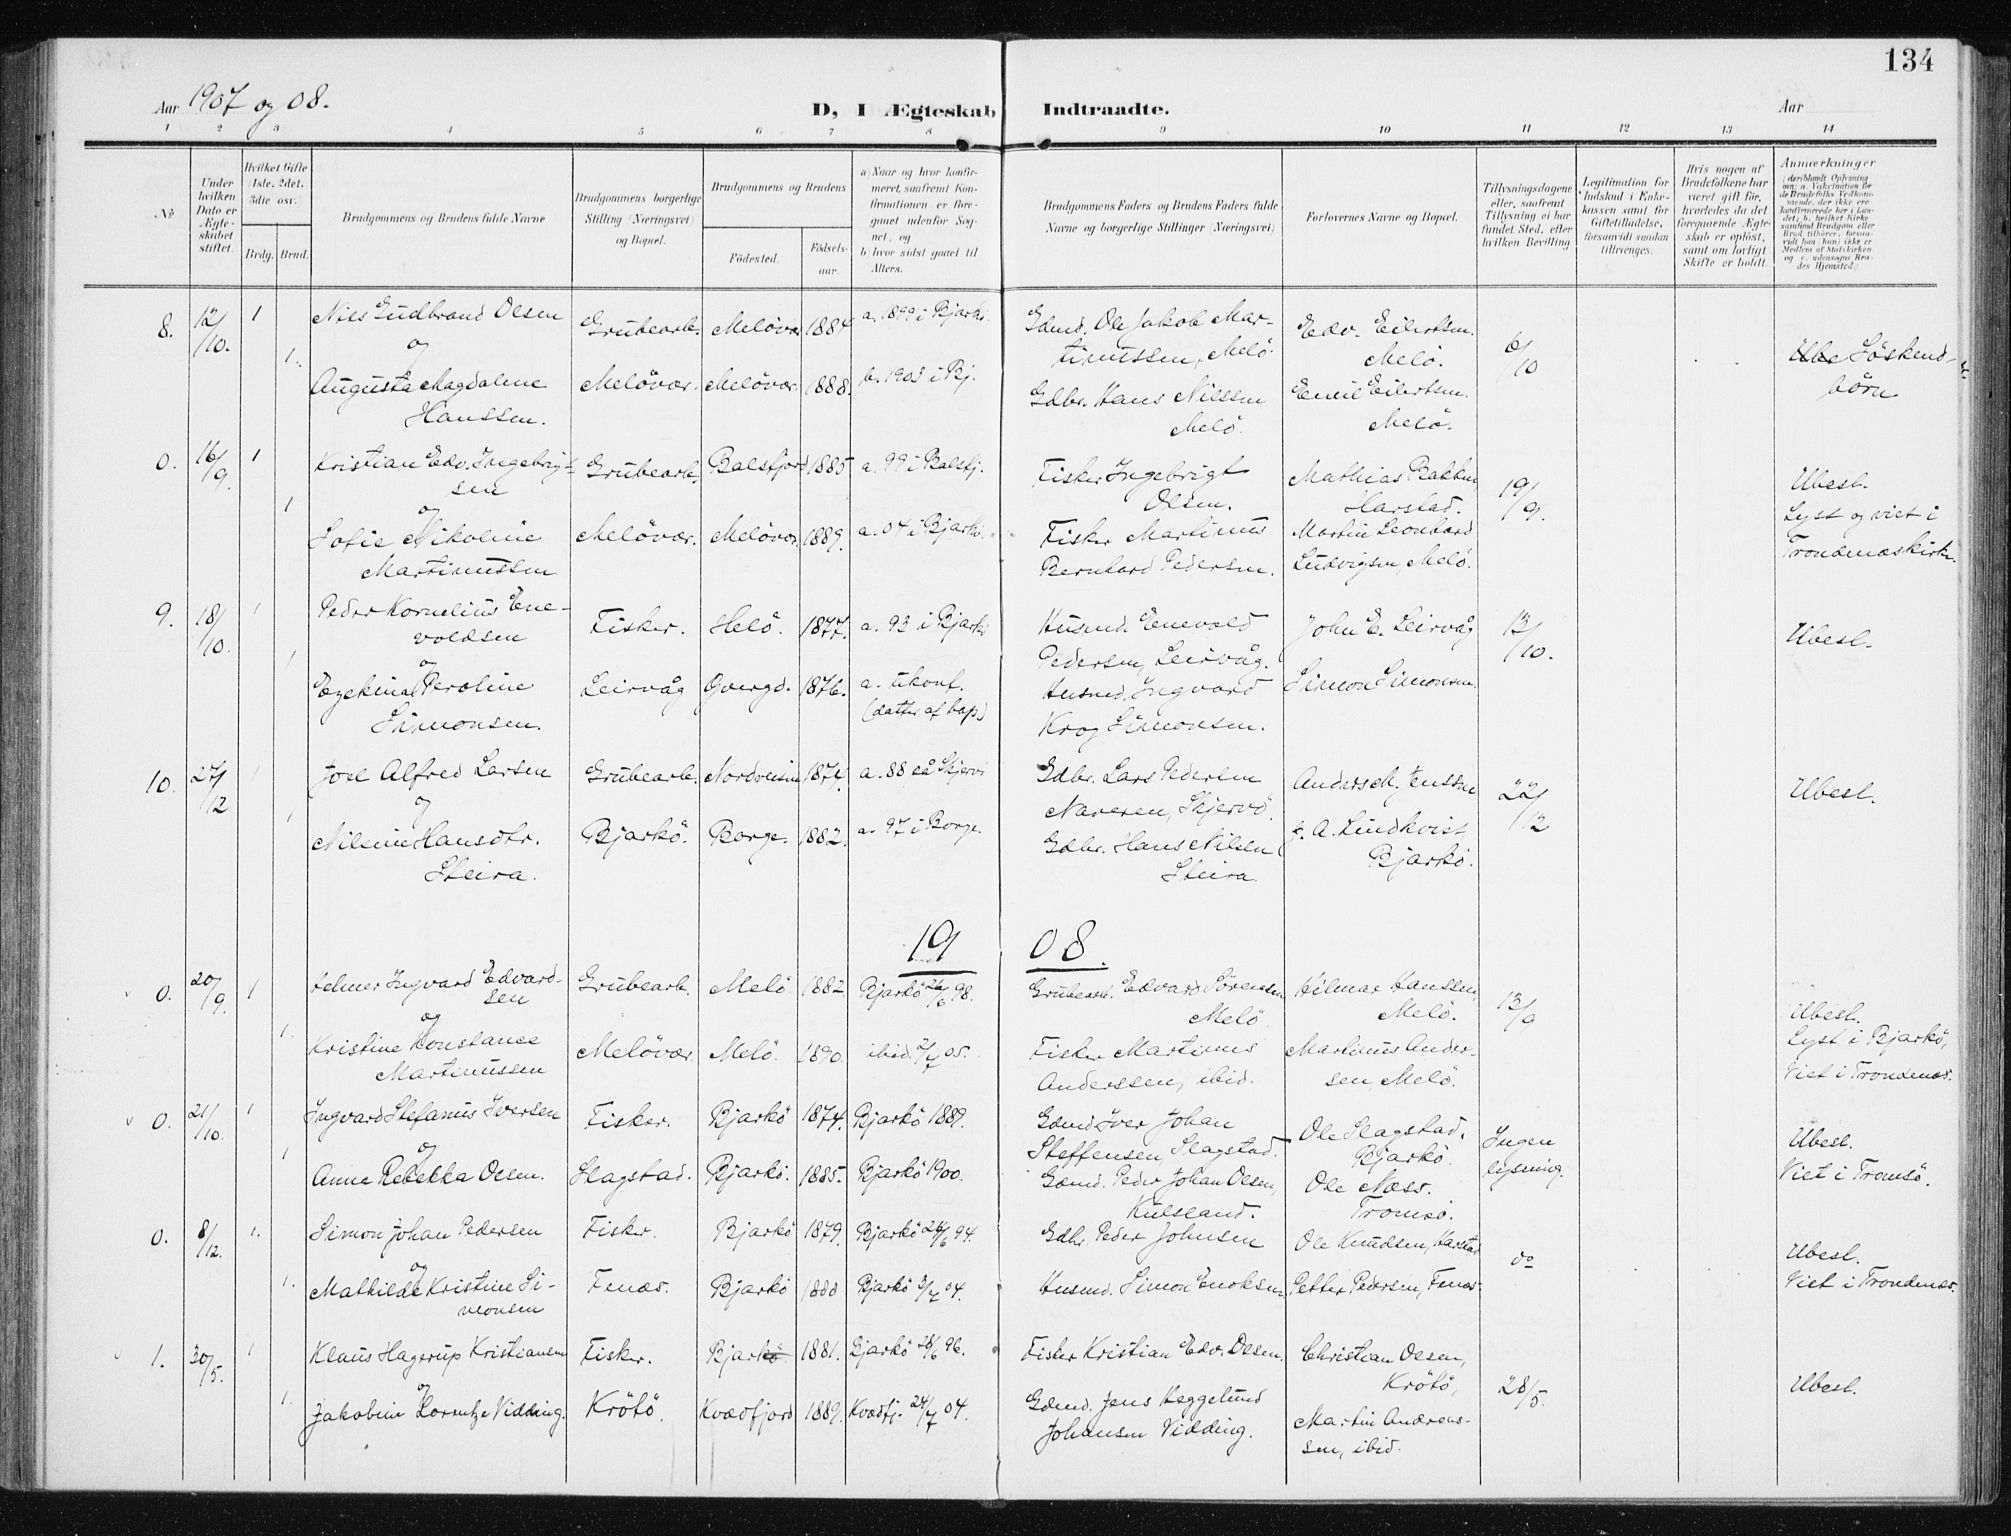 134
Aar 1907 og 08.
D, I Ægteskab Indtraadte.
Aar
1 2 3 4 5 6 7 8 9 10 11 12 13 14
No
Under hvilken Dato er Ægteskabet stiftet.
Hvilket Gifte (1ste, 2det, 3die osv.)
Brdg. Brud.
Brudgommens og Brudens fulde Navne
Brudgommens borgerlige Stilling (Næringsvei) og Bopæl.
Brudgommens og Brudens
Fødested. Fødselsaar.
a) Naar og hvor konfirmeret, saafremt Konfirmationen er foregaaet udenfor Sognet, og
b) hvor sidst gaaet til Alters.
Brudgommens Faders og Brudens Faders fulde Navne og borgerlige Stillinger (Næringsvei)
Forlovernes Navne og Bopæl.
Tillysningsdagene eller, saafremt Tillysning ei har fundet Sted, efter hvilken Bevilling
Legitimation for Indskud i Enkekassen samt for Giftetilladelse, forsaavidt saadan tiltrænges.
Hvis nogen af Brudefolkene har været gift før, hvorledes da det foregaaende Ægteskab er opløst, samt om lovligt Skifte er holdt.
Anmerkninger
8. 12/10. 1 Nils Gudbrand Olsen Grubearb. Melövær 1884. a. 1899 i Bjarkö. Gdmd. Ole Jakob Mar- Edv. Eilertsen. 6/10
og timussen, Melö. Melö. Söskend-
1. Augusta Magdalene Melövær. Melövær. 1888. b. 1903 i Bj. Gdbr. Hans Nilssen Emil Eilertsen. börn
Hanssen. Melö. Melö.
0. 16/9. 1 Kristian Edv. Ingebrigt- Grubearb. Balsfjord 1885 a. 99 i Balsfj. Fisker Ingebrigt Mathias Bakken, 19/9. Ubesl.
sen Olsen. Harstad. Lyst og viet i
og
1 Sofie Nikoline Melövær. Melövær. 1889. a. 04 i Bjarkö. Fisker Martinus Martin Leonhard Trondenæskirke.
Martinussen Bernhard Pedersen. Ludvigsen, Melö.
9. 18/10. 1 Peder Kornelius Ene- Fisker. Melö. 1877. a. 93 i Bjarkö Husmd. Enevold John E. Leirvåg 13/10. Ubesl.
voldsen Pedersen, Leirvåg.
og
1 Ezekina Peroline Leirvåg Qvergd. 1876. a. ukonf. Husmd. Ingvard Simon Simonsen.
Simonsen. (datter af bap.) Krog Simonsen.
10. 27/12 1 Joel Alfred Larsen Grubearb. Nordreisen 1874. a. 88 på Skjervö Gdbr. Lars Pedersen Anders M. Jenssen 22/12 Ubesl.
og Naveren, Skjervö.
1 Nilsine Hansdtr. Bjarkö. Borge. 1882. a. 97 i Borge. Gdbr. Hans Nilsen J. A. Lindkvist,
Steira. Steira. Bjarkö.
1908.
0. 20/9. 1 Helmer Ingvard Edvard- Grubearb. Melö. 1882 Bjarkö 26/6 98. Grubearb. Edvard Sörensen Hilmar Hanssen, 13/9 Ubesl.
sen Melö. Melö. Lyst i Bjarkö,
og
1. Kristine Konstance Melövær. Melö. 1890. ibid. 2/7 05. Fisker Martinus Martinus Ander- Viet i Trondenæs.
Martinussen Anderssen, ibid. sen, Melö.
0. 21/10. 1 Ingvard Stefanus Iversen Fisker. Bjarkö 1874. Bjarkö 1889. Gdmd. Iver Johan Ole Slagstad, Ingen Ubesl.
og Steffensen, Slagstad. Bjarkö. lysning. Viet i Tromsö.
1 Anna Rebekka Olsen. Slagstad. Bjarkö. 1885. Bjarkö 1900. Gdmd. Peder Johan Olsen, Ole Næss.
Kulseland. Tromsö.
0. 8/12. 1. Simon Johan Pedersen Fisker. Bjarkö 1879. Bjarkö 24/6 94. Gdbr. Peder Johnsen Ole Knudsen, Harstad do Ubesl.
og
1. Mathilde Kristine Si- Fenæs. Bjarkö 1888 Bjarkö 3/7 04. Husmd. Simon Enoksen Petter Pedersen, Fenæs. Viet i Trondenæs.
monsen
1. 30/5. 1 Klaus Hagerup Kristiansen Fisker. Bjarkö 1881. Bjarkö 28/6 96. Fisker Kristian Edv. Olsen. Christian Olsen, 28/5. Ubesl.
og Krötö,
1. Jakobine Lorentze Vidding. Krötö. Kvædfjord 1889. Kvædfj. 24/7 04. Gdmd. Jens Heggelund Martin Andreas-
Johansen Vidding. sen, ibid.